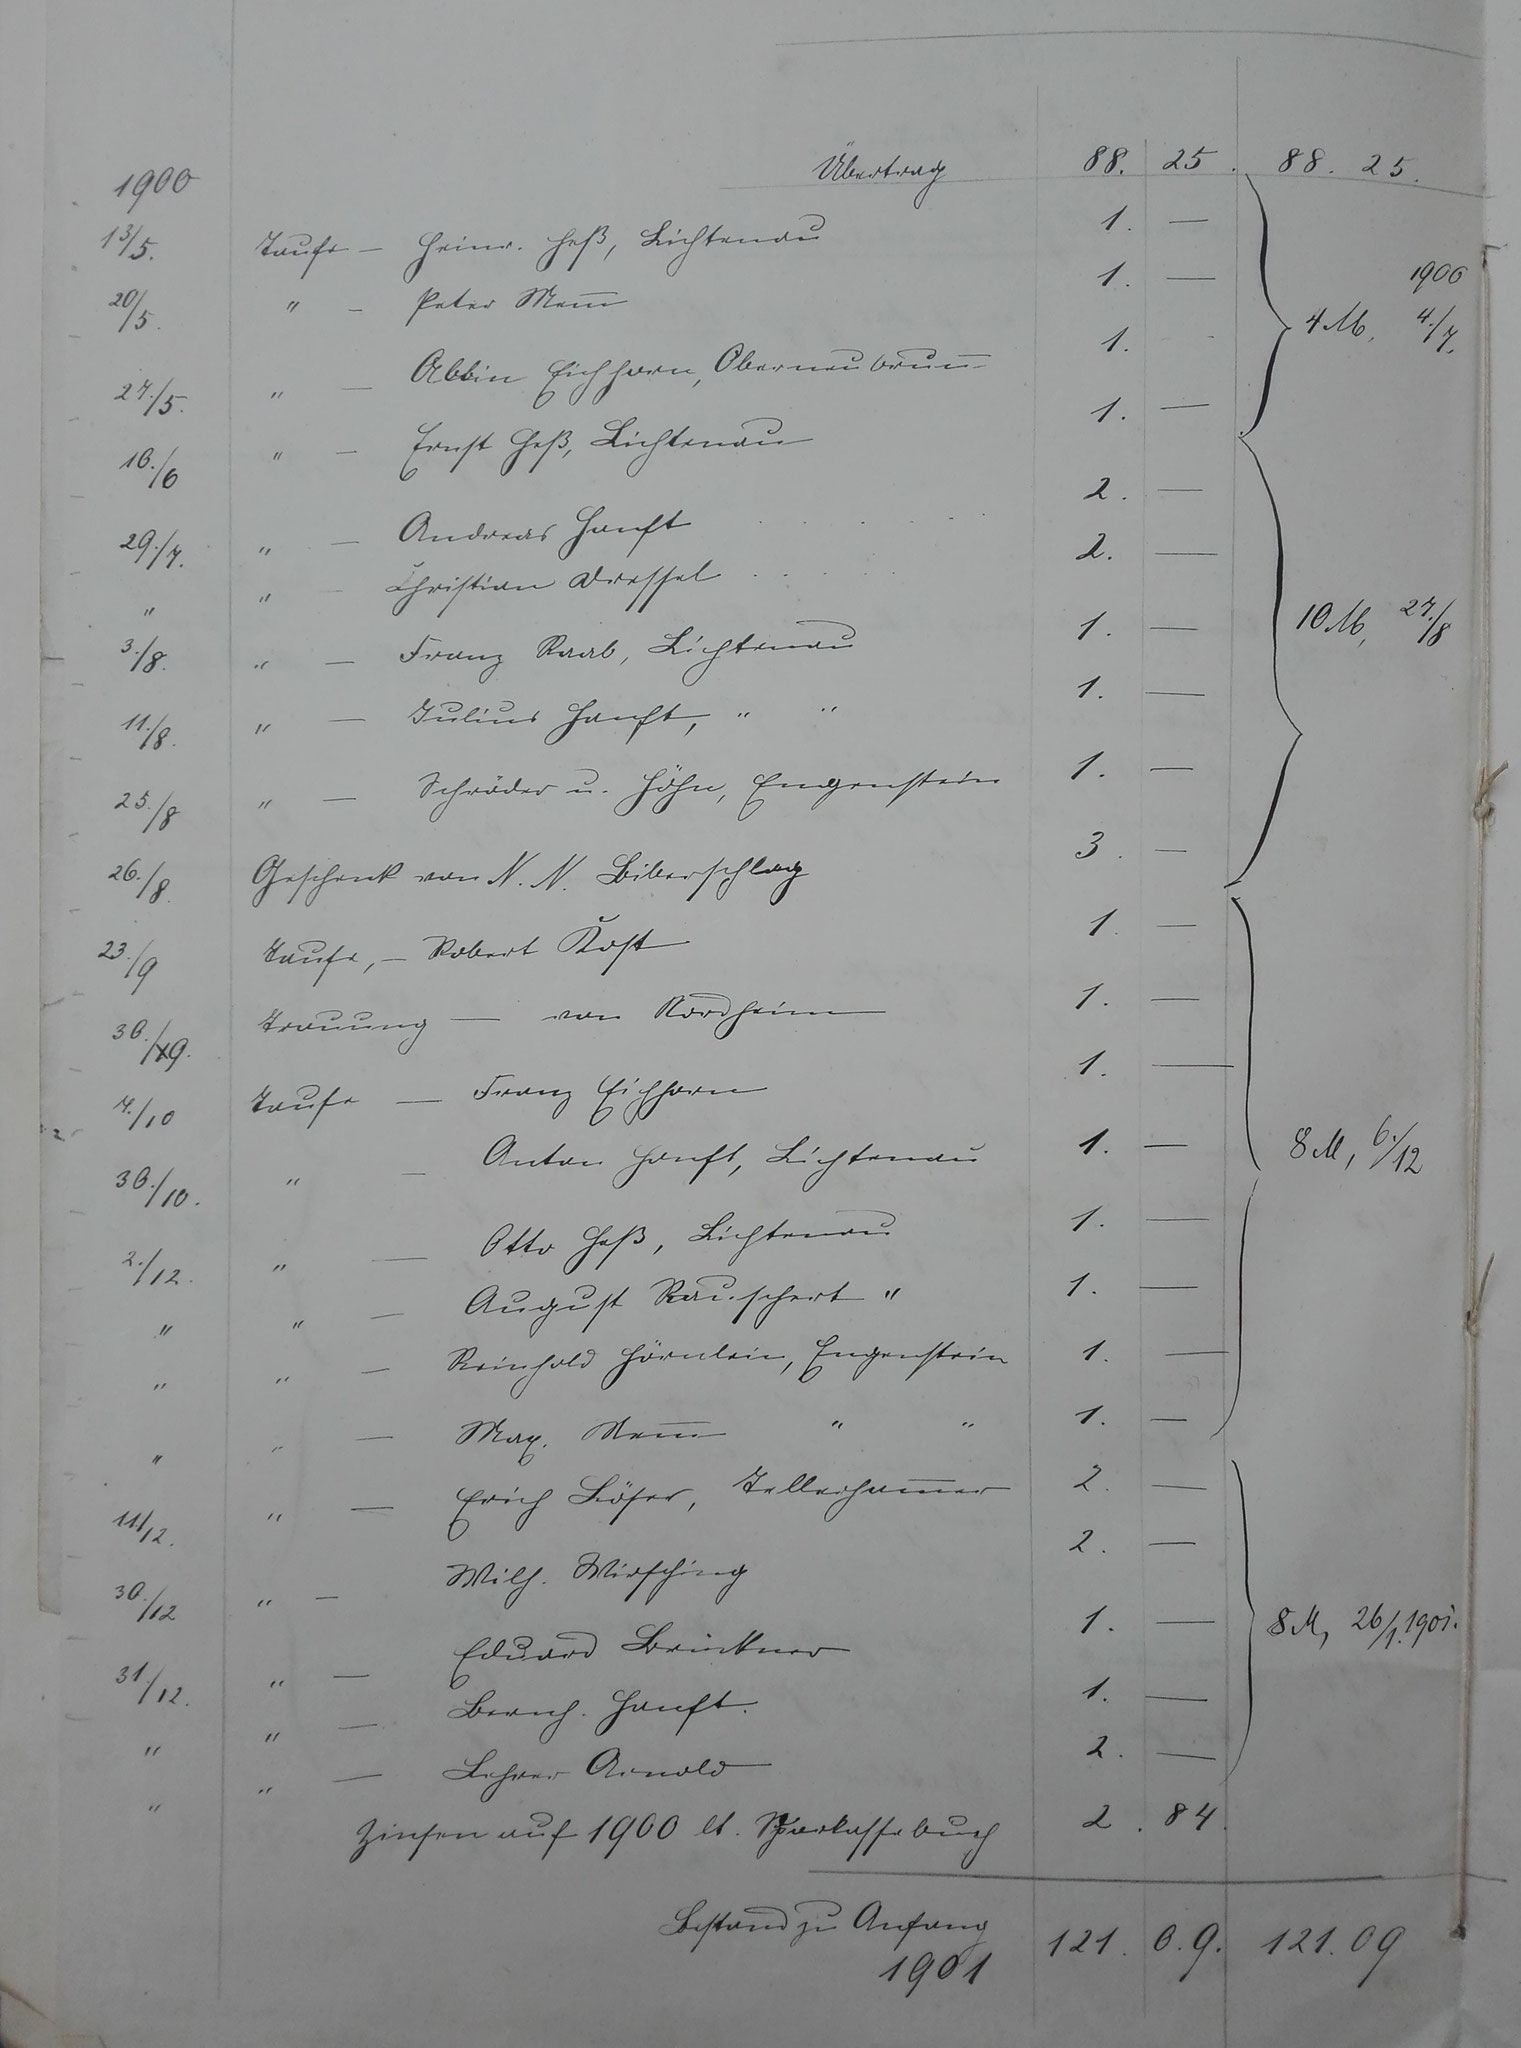 1900 Übertrag 88. 25. 88. 25.
13/5. Taufe — Heinr. Heß, Lichtenau 1. —
20/5. " — Peter Mem̅ 1. — 1900
27./5. " — Albin Eichhorn, Oberneubrun̅ 1. 4 M, 4./7.
10./6 " — Ernst Heß, Lichtenau 1. —
29./7. " — Andreas Hanft 2. —
" " — Christian Dressel 2. —
3./8. " — Franz Raab, Lichtenau 1. — 10 M, 27./8
11./8. " — Julius Hanft, " " 1. —
25./8 " — Schröder u. Höhn, Engenstein 1. —
26./8. Geschenk von N. N. Biberschlag 3. —
23./9 Taufe, — Robert Kost 1. —
30./9. Trauung — von Nordheim 1. —
7./10 Taufe — Franz Eichhorn 1. —
30./10. " — Anton Hanft, Lichtenau 1. — 8 M, 6./12
2./12. " — Otto Heß, Lichtenau 1. —
" " — August Rauschert " 1. —
" " — Reinhold Hörnlein, Engenstein 1. —
" " — Max. Mem̅ " " 1. —
11/12. " — Erich Löser, Tellerham̅er 2. —
30./12 " — Wilh. Wirsching 2. —
31/12. " — Eduard Brückner 1. — 8 M, 26/1. 1901.
" " — Bernh. Hanft. 1. —
" " — Lehrer Arnold 2. —
Zinsen auf 1900 lt. Sparkassebuch 2. 84.
Bestand zu Anfang
1901 121. 0.9. 121.09